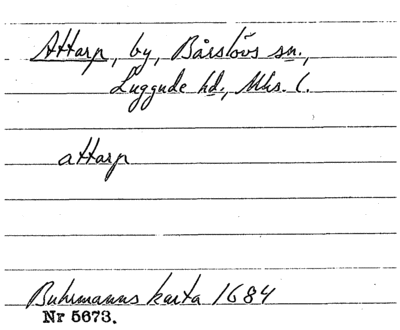 Attarp, by, Bårslövs sn.,
Luggude hd., Mhs. l.
attarp
Buhrmanns karta 1684
Nr 5673.